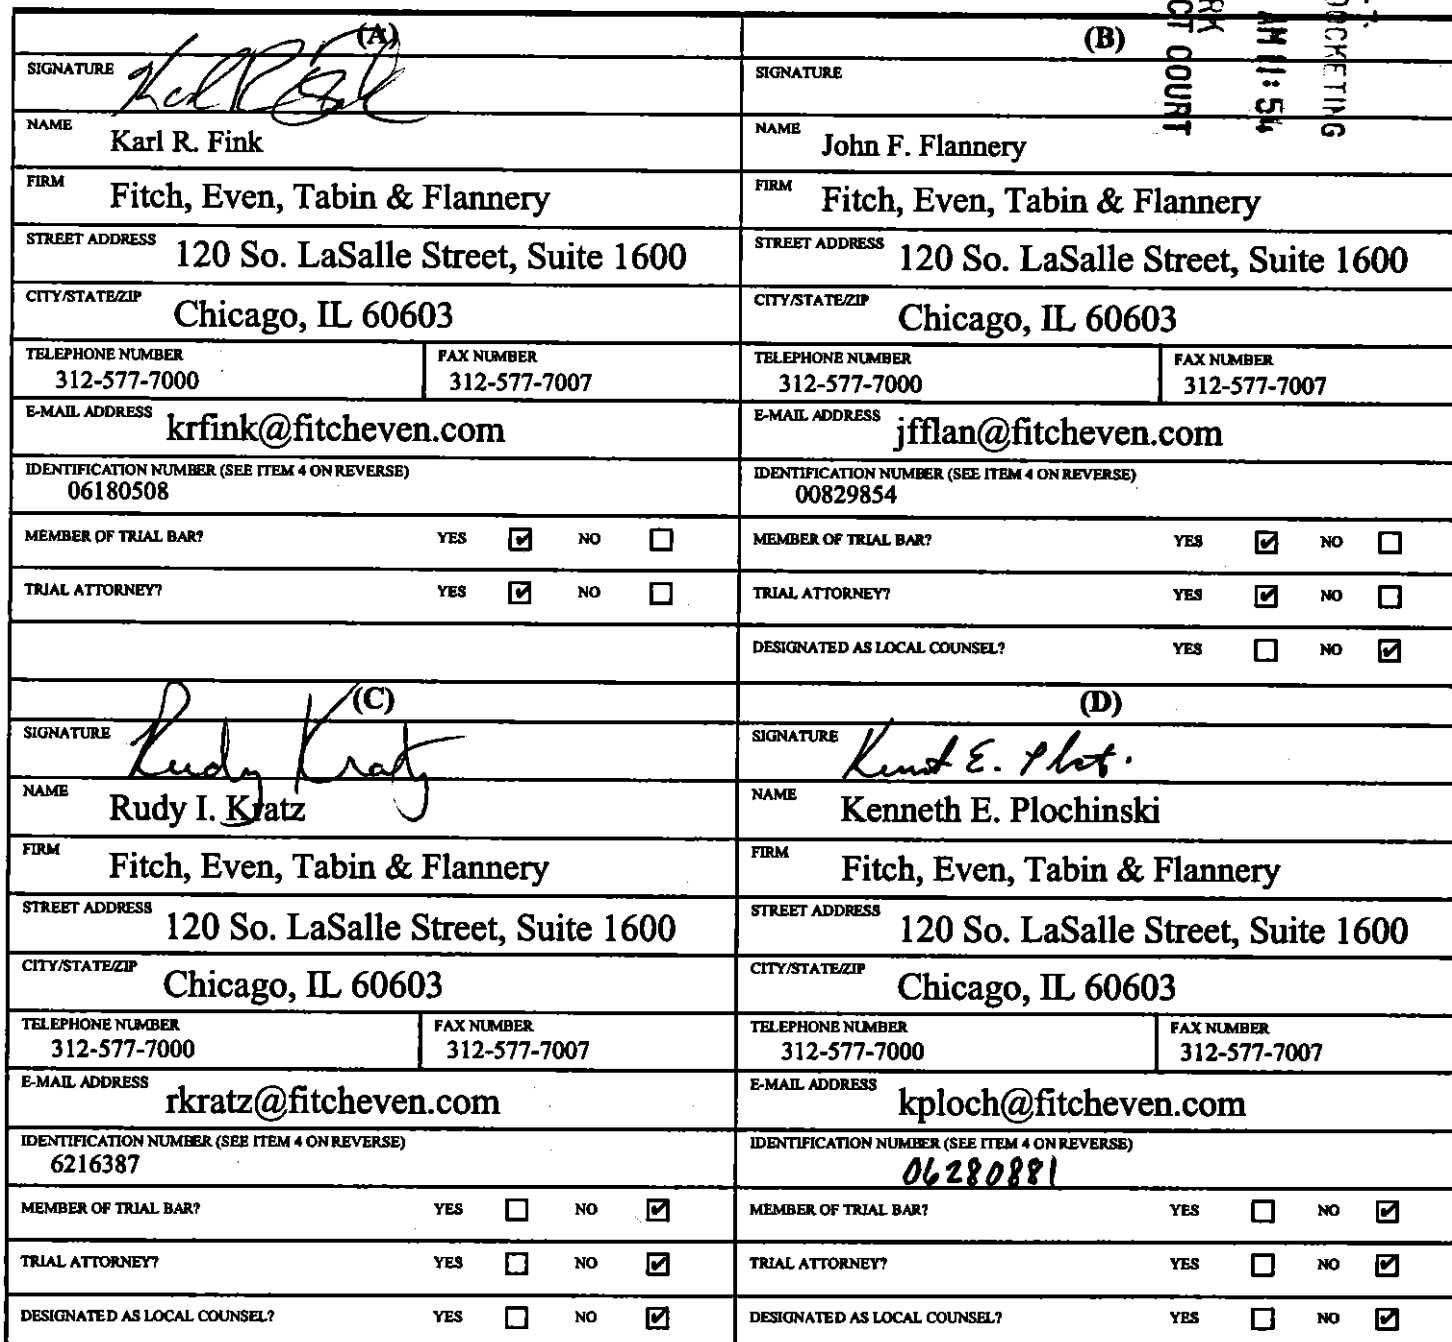 (A)
SIGNATURE
NAME Karl R. Fink
FIRM Fitch, Even, Tabin & Flannery
STREET ADDRESS 120 So. LaSalle Street, Suite 1600
CITY/STATE/ZIP Chicago, IL 60603
TELEPHONE NUMBER FAX NUMBER
312-577-7000 312-577-7007
E-MAIL ADDRESS krfink@fitcheven.com
IDENTIFICATION NUMBER (SEE ITEM 4 ON REVERSE)
06180508
MEMBER OF TRIAL BAR? YES ☑ NO ☐
TRIAL ATTORNEY? YES ☑ NO ☐
(B)
DOCKETING
AM 11:54
COURT
SIGNATURE
NAME John F. Flannery
FIRM Fitch, Even, Tabin & Flannery
STREET ADDRESS 120 So. LaSalle Street, Suite 1600
CITY/STATE/ZIP Chicago, IL 60603
TELEPHONE NUMBER FAX NUMBER
312-577-7000 312-577-7007
E-MAIL ADDRESS jfflan@fitcheven.com
IDENTIFICATION NUMBER (SEE ITEM 4 ON REVERSE)
00829854
MEMBER OF TRIAL BAR? YES ☑ NO ☐
TRIAL ATTORNEY? YES ☑ NO ☐
DESIGNATED AS LOCAL COUNSEL? YES ☐ NO ☑
(C)
SIGNATURE Rudy Kratz
NAME Rudy I. Kratz
FIRM Fitch, Even, Tabin & Flannery
STREET ADDRESS 120 So. LaSalle Street, Suite 1600
CITY/STATE/ZIP Chicago, IL 60603
TELEPHONE NUMBER FAX NUMBER
312-577-7000 312-577-7007
E-MAIL ADDRESS rkratz@fitcheven.com
IDENTIFICATION NUMBER (SEE ITEM 4 ON REVERSE)
6216387
MEMBER OF TRIAL BAR? YES ☐ NO ☑
TRIAL ATTORNEY? YES ☐ NO ☑
DESIGNATED AS LOCAL COUNSEL? YES ☐ NO ☑
(D)
SIGNATURE
NAME Kenneth E. Plochinski
FIRM Fitch, Even, Tabin & Flannery
STREET ADDRESS 120 So. LaSalle Street, Suite 1600
CITY/STATE/ZIP Chicago, IL 60603
TELEPHONE NUMBER FAX NUMBER
312-577-7000 312-577-7007
E-MAIL ADDRESS kploch@fitcheven.com
IDENTIFICATION NUMBER (SEE ITEM 4 ON REVERSE)
06280881
MEMBER OF TRIAL BAR? YES ☐ NO ☑
TRIAL ATTORNEY? YES ☐ NO ☑
DESIGNATED AS LOCAL COUNSEL? YES ☐ NO ☑